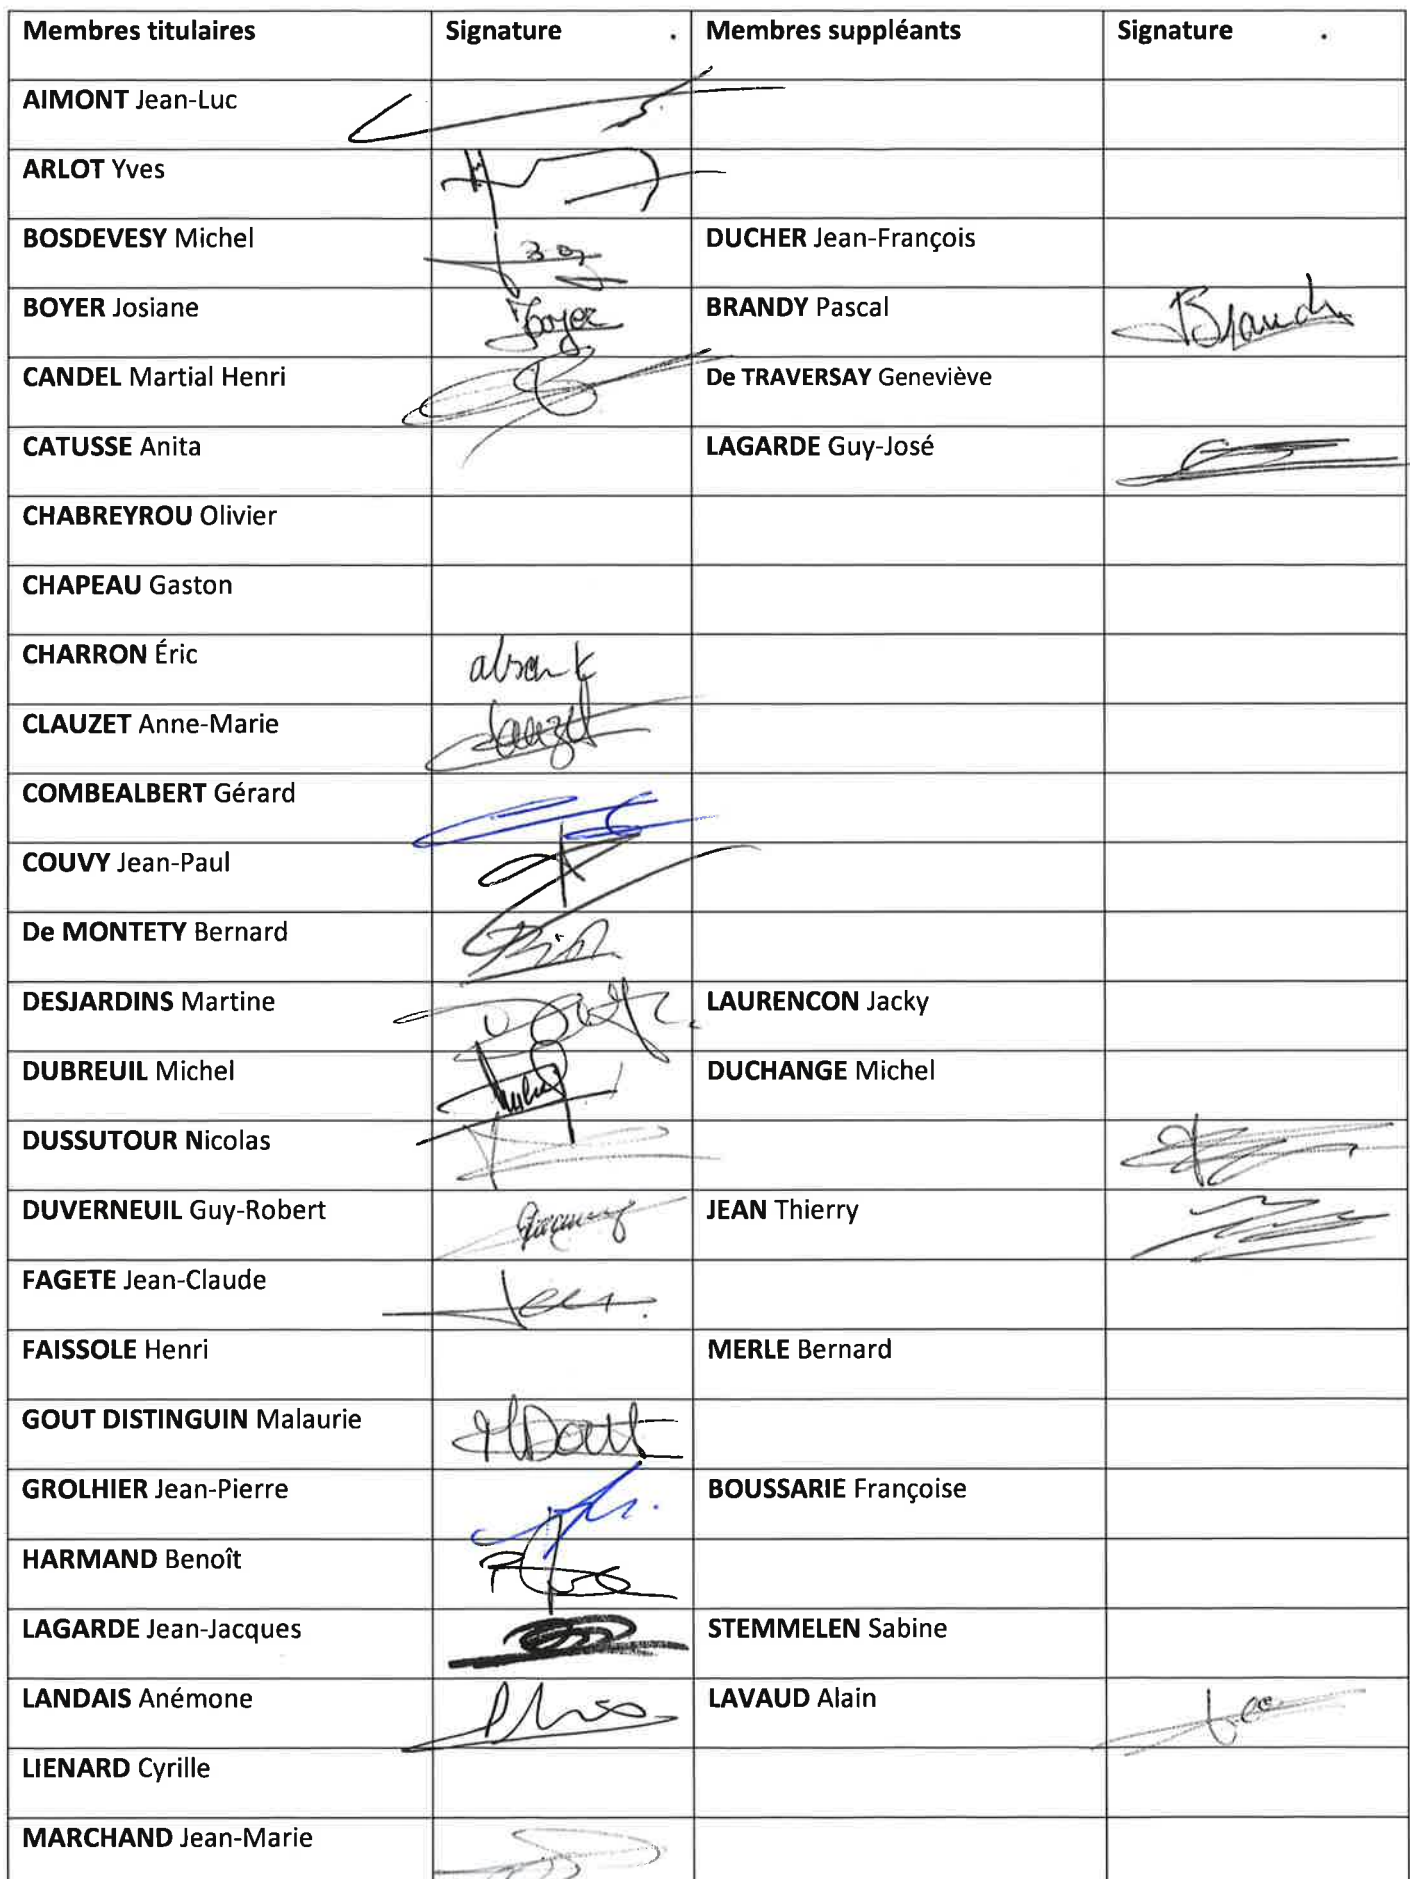 Membres titulaires Signature . Membres suppléants Signature .
AIMONT Jean-Luc
ARLOT Yves
BOSDEVESY Michel DUCHER Jean-François
BOYER Josiane Boyer BRANDY Pascal Brandy
CANDEL Martial Henri De TRAVERSAY Geneviève
CATUSSE Anita LAGARDE Guy-José
CHABREYROU Olivier
CHAPEAU Gaston
CHARRON Éric absent
CLAUZET Anne-Marie Clauzet
COMBEALBERT Gérard
COUVY Jean-Paul
De MONTETY Bernard
DESJARDINS Martine LAURENCON Jacky
DUBREUIL Michel DUCHANGE Michel
DUSSUTOUR Nicolas
DUVERNEUIL Guy-Robert JEAN Thierry
FAGETE Jean-Claude
FAISSOLE Henri MERLE Bernard
GOUT DISTINGUIN Malaurie
GROLHIER Jean-Pierre BOUSSARIE Françoise
HARMAND Benoît
LAGARDE Jean-Jacques STEMMELEN Sabine
LANDAIS Anémone LAVAUD Alain
LIENARD Cyrille
MARCHAND Jean-Marie